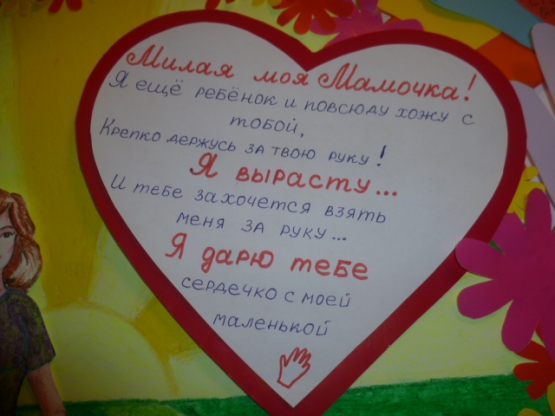 Милая моя Мамочка!
Я ещё ребёнок и повсюду хожу с
тобой,
Крепко держусь за твою руку!
Я вырасту...
И тебе захочется взять
меня за руку...
Я дарю тебе
сердечко с моей
маленькой